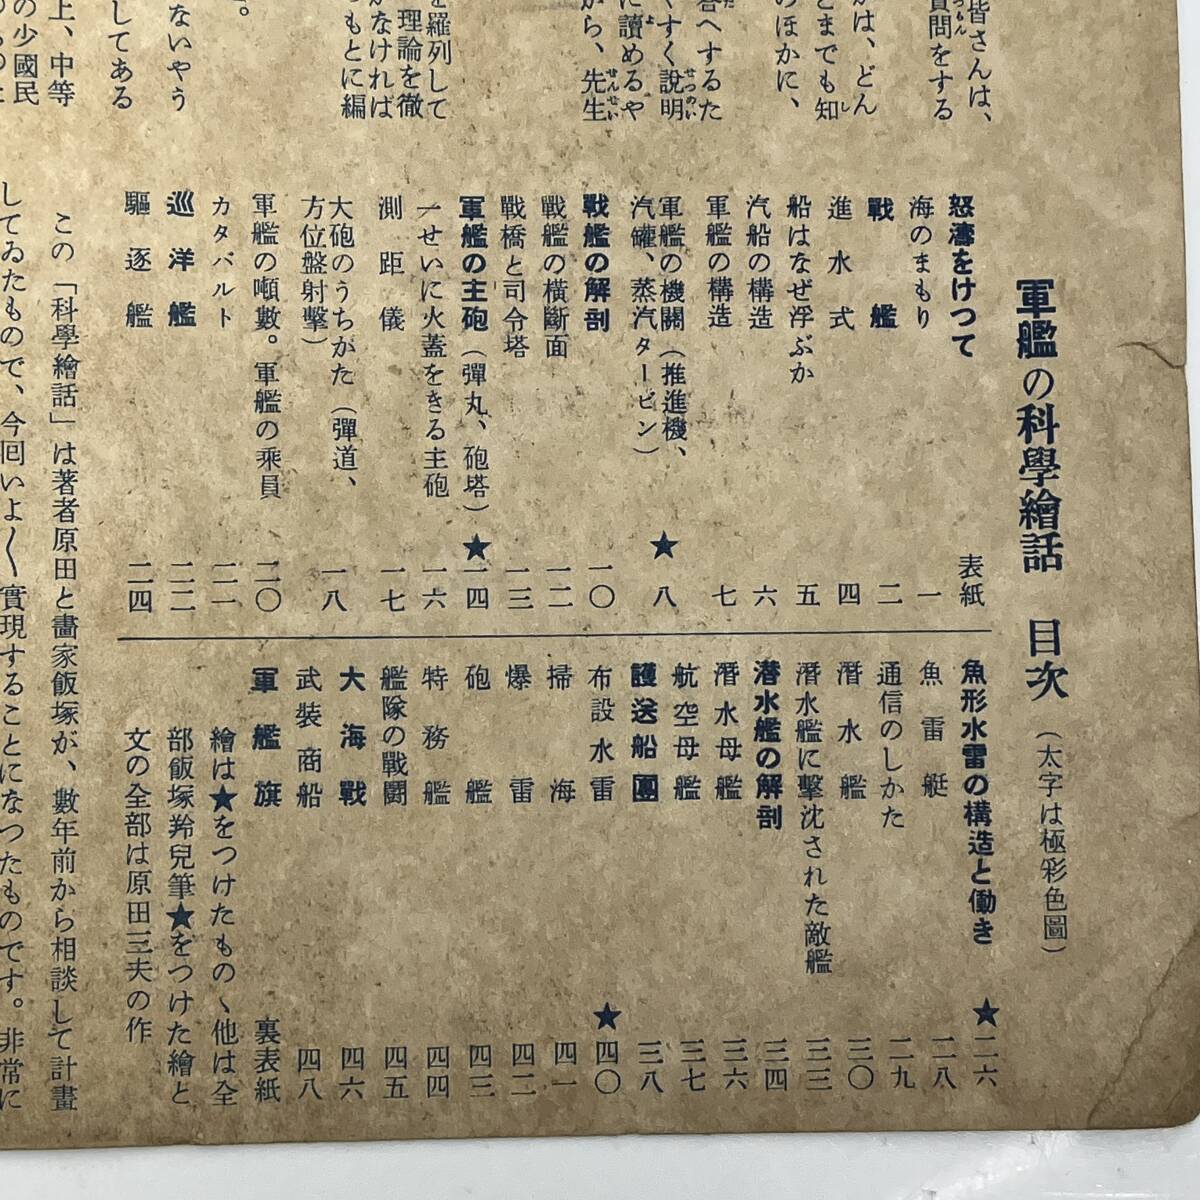 皆さんは、
質問をする
は、どん
こまでも知
のほかに、
答へするた
すく說明
に讀めるや
から、先生
を羅列して
理論を徹
なければ
もとに編
。
ないやう
してある
上、中等
の少國民
軍艦の科學繪話　目次（太字は極彩色圖）
怒濤をけつて　表紙
海のまもり　一
戰艦　二
進水式　四
船はなぜ浮ぶか　五
汽船の構造　六
軍艦の構造　七
軍艦の機關（推進機、
汽罐、蒸汽タービン）　★八
戰艦の解剖　一〇
戰艦の橫斷面　一二
戰橋と司令塔　一三
軍艦の主砲（彈丸、砲塔）　★一四
一せいに火蓋をきる主砲　一六
測距儀　一七
大砲のうちがた（彈道、
方位盤射擊）　一八
軍艦の噸數。軍艦の乘員　二〇
カタパルト　二一
巡洋艦　二二
驅逐艦　二四
魚形水雷の構造と働き　★二六
魚雷艇　二八
通信のしかた　二九
潛水艦　三〇
潛水艦に擊沈された敵艦　三三
潜水艦の解剖　三四
潛水母艦　三六
航空母艦　三七
護送船團　三八
布設水雷　★四〇
掃海　四一
爆雷　四二
砲艦　四三
特務艦　四四
艦隊の戰鬪　四五
大海戰　四六
武裝商船　四八
軍艦旗　裏表紙
繪は★をつけたものゝ他は全
部飯塚羚兒筆★をつけた繪と
文の全部は原田三夫の作
この「科學繪話」は著者原田と畫家飯塚が、數年前から相談して計畫
してゐたもので、今回いよ〳〵實現することになつたものです。非常に